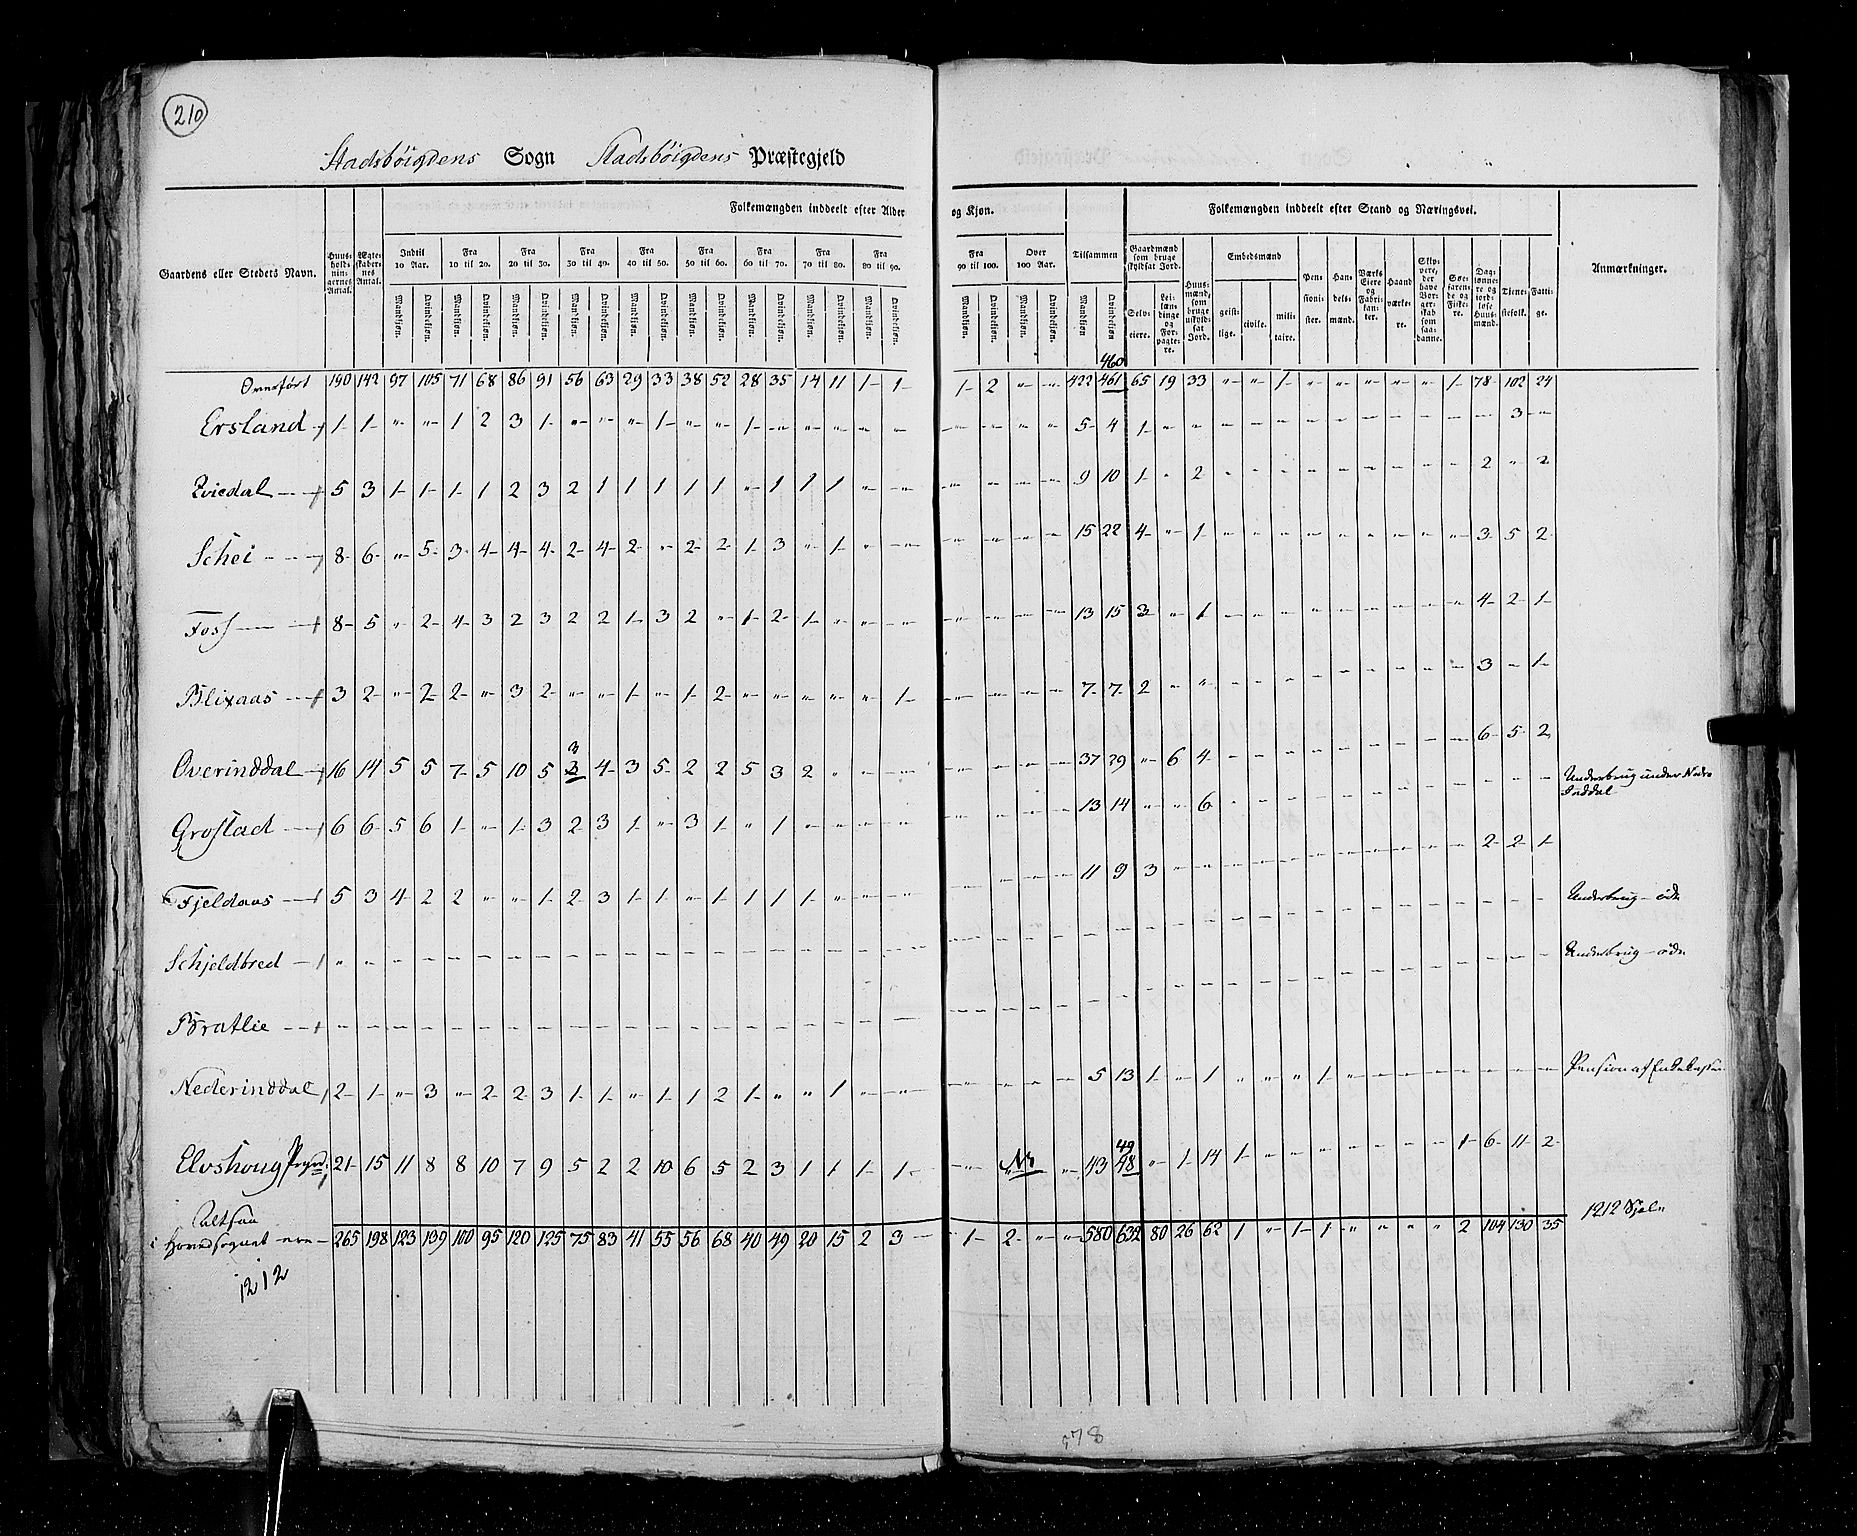 210
Stadsbøigdens Sogn Stadsbøigdens Præstegjeld
Folkemængden inddeelt efter Alder og Kjøn. Folkemængden inddeelt efter Stand og Næringsvei.
Gaardens eller Stedets Navn. Huusholdningernes Antal. Ægteskabernes Antal. Indtil 10 Aar. Fra 10 til 20. Fra 20 til 30. Fra 30 til 40. Fra 40 til 50. Fra 50 til 60. Fra 60 til 70. Fra 70 til 80. Fra 80 til 90. Fra 90 til 100. Over 100 Aar. Tilsammen Gaardmænd som bruge skyldsat Jord. Huusmænd, som bruge uskyldsat Jord. Embedsmænd Pensionister. Handelsmænd. Værks Eiere og Fabrikanter. Haandværkere. Skippere, der have Borgerskab som saadanne. Søefarende og Fiskere. Dagslønnere og jordløse Huusmænd. Tjenestefolk. Fattige. Anmærkninger.
Mandkjøn. Qvindekjøn. Selveiere. Leilændinge og Forpagtere. geistlige. civile. militaire.
460
Overført 190 142 97 105 71 68 86 91 56 63 29 33 38 52 28 35 14 11 1 1 1 2 " " 422 461 65 19 33 " " 1 " " " " " 1 78 102 24
Ersland 1 1 " " 1 2 3 1 " " " 1 " " 1 " " " " " " " " " 5 4 1 " " " " " " " " " " " " 3 "
Qviedal 5 3 1 1 1 1 2 3 2 1 1 1 1 1 " 1 1 1 " " " " " " 9 10 1 " 2 " " " " " " " " " 2 " 2
Schei 8 6 " 5 3 4 4 4 2 4 2 " 2 2 1 3 " 1 " " " " " " 15 22 4 " 1 " " " " " " " " " 3 5 2
Foss 8 5 " 2 4 3 2 3 2 2 1 3 2 " 1 2 1 " " " " " " " 13 15 3 " 1 " " " " " " " " " 4 2 1
Blixaas 3 2 " 2 2 " 3 2 " " 1 " 1 2 " " " " " 1 " " " " 7 7 2 " " " " " " " " " " " 3 " 1
3
Overinddal 16 14 5 5 7 5 10 5 3 4 3 5 2 2 5 3 2 " " " " " " " 37 29 " 6 4 " " " " " " " " " 6 5 2 Underbrug under Nedre Inddal
Grostad 6 6 5 6 1 " 1 3 2 3 1 " 3 1 " 1 " " " " " " " " 13 14 " " 6 " " " " " " " " " " " "
Fjeldaas 5 3 4 2 2 " " 1 2 3 1 1 " 1 1 1 1 " " " " " " " 11 9 3 " " " " " " " " " " " 2 2 1 Underbrug – øde
Schjeldbred " " " " " " " " " " " " " " " " " " " " " " " " " " " " " " " " " " " " " " " " " Underbrug – øde
Bratlie " " " " " " " " " " " " " " " " " " " " " " " " " " " " " " " " " " " " " " " " "
Nederinddal 2 1 " 3 " 2 2 3 1 1 " 1 1 2 1 " " 1 " " " " " " 5 13 1 " 1 " " " 1 " " " " " " " " Pension af Enkekassen
49
Elvshoug Prgd. 21 15 11 8 8 10 7 9 5 2 2 10 6 5 2 3 1 1 1 1 " " " " 43 48 " 1 14 1 " " " " " " " 1 6 11 2
Altsaa
i Hovedsognet ere 265 198 123 139 100 95 120 125 75 83 41 55 56 68 40 49 20 15 2 3 1 2 " " 580 632 80 26 62 1 " 1 1 " " " " 2 104 130 35 1212 Sjæle
1212
578